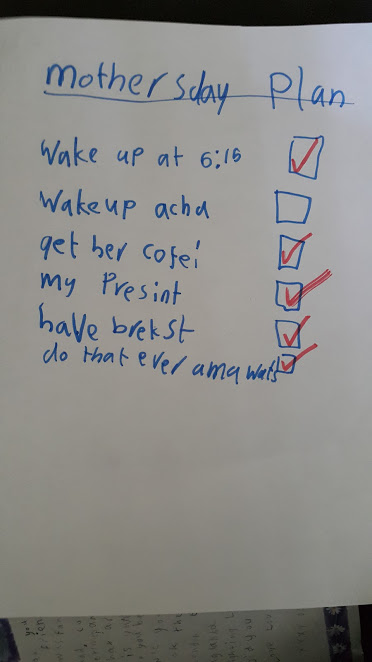 mothersday Plan
Wake up at 6:15
Wakeup acha
get her cofei
my Presint
have brekst
do that ever ama wats